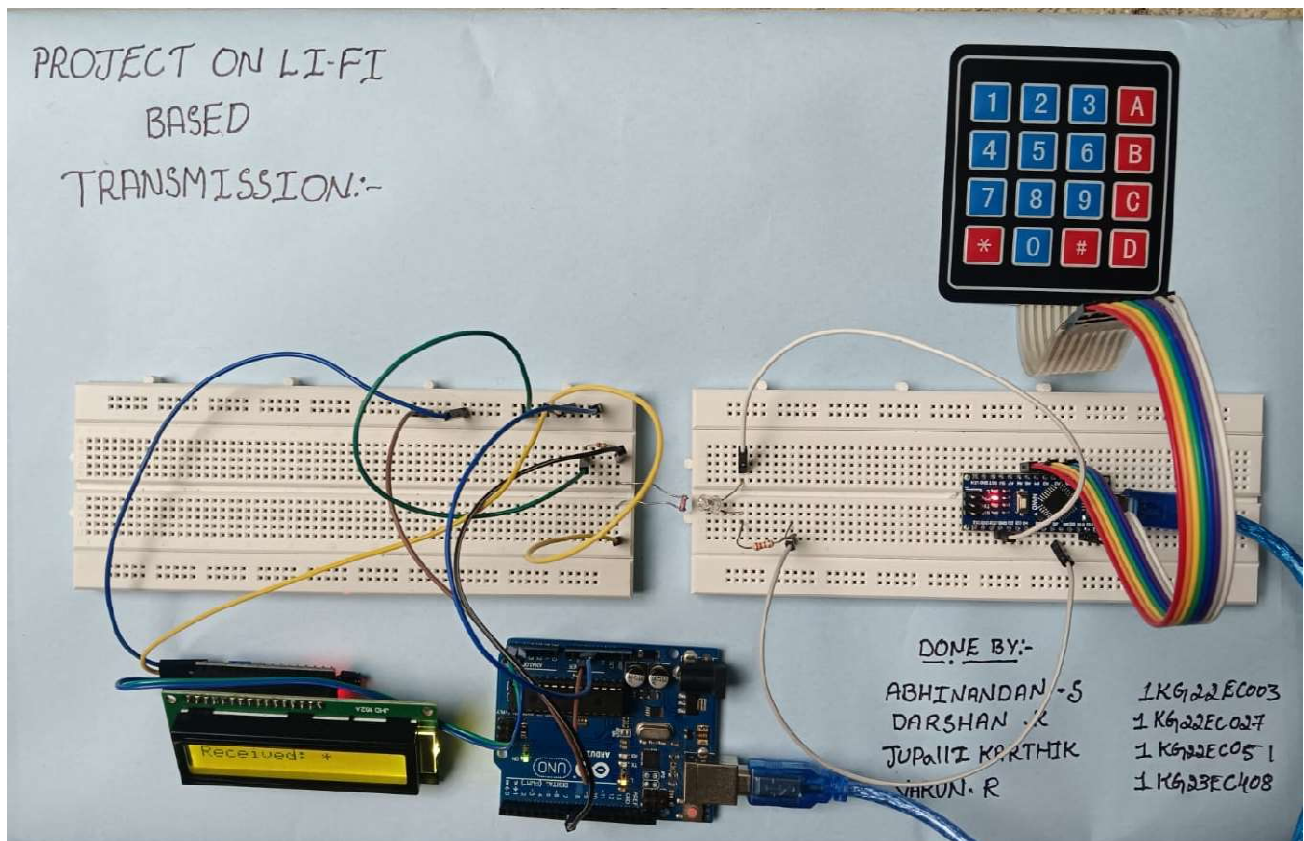 PROJECT ON LI-FI
BASED
TRANSMISSION:-
1 2 3 A
4 5 6 B
7 8 9 C
* 0 # D
DONE BY:-
ABHINANDAN-S 1KG22EC003
DARSHAN.K 1KG22EC027
JUPallI KARTHIK 1KG22EC051
VARUN.R 1KG23EC408
JHD 162A
Received: *
UNO